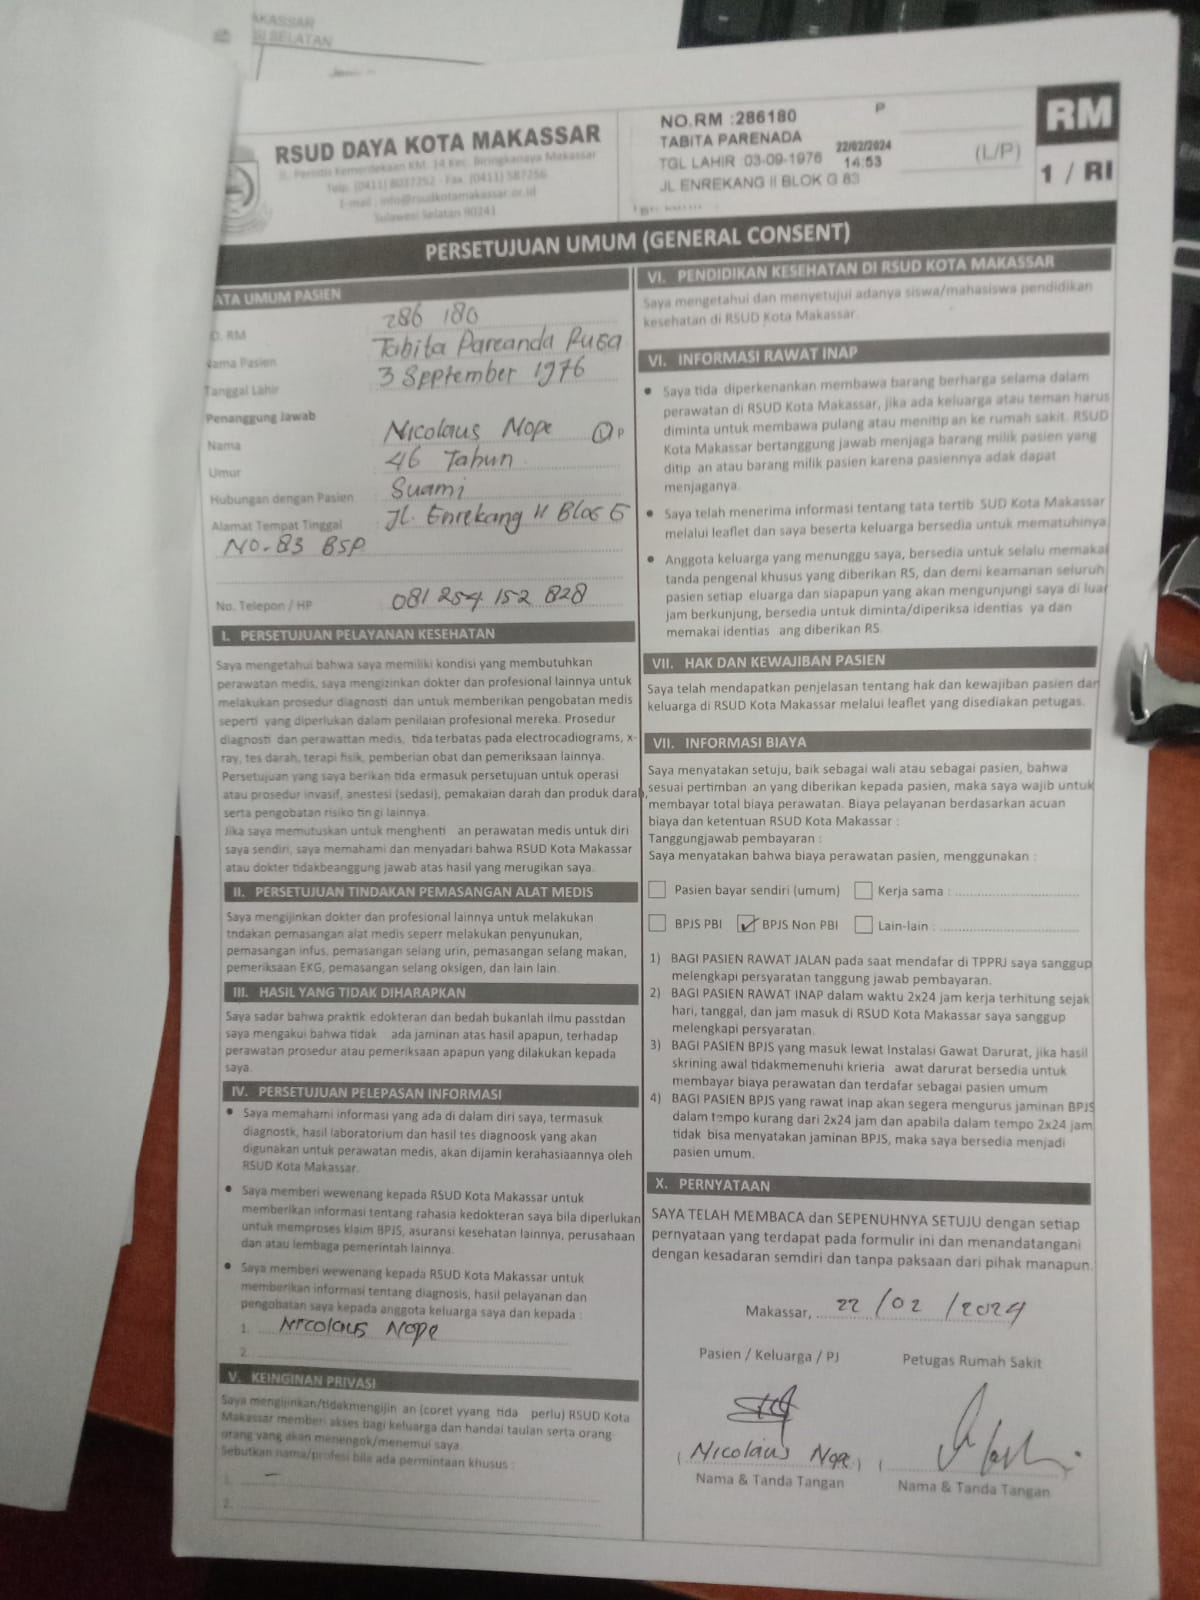 AKASSAR
SI SELATAN
RSUD DAYA KOTA MAKASSAR
JL. Perintis Kemerdekaan KM. 14 Kec. Biringkanaya Makassar
Telp. (0411) 8037252 - Fax. (0411) 587256
E-mail : info@rsudkotamakassar.or.id
Sulawesi Selatan 90241
NO.RM :286180 P
TABITA PARENADA
TGL LAHIR :03-09-1976
22/02/2024
14:53
JL ENREKANG II BLOK G 83
(L/P)
RM
1 / RI
PERSETUJUAN UMUM (GENERAL CONSENT)
ATA UMUM PASIEN
O. RM 286 180
Nama Pasien Tabita Pareanda Rusa
Tanggal Lahir 3 Sppтember 1976
Penanggung Jawab
Nama Nicolaus Nope L P
Umur 46 Tahun
Hubungan dengan Pasien Suami
Alamat Tempat Tinggal Jl. Enrekang II Blok G
No. 83 BSP
No. Telepon / HP 081 254 152 828
I. PERSETUJUAN PELAYANAN KESEHATAN
Saya mengetahui bahwa saya memiliki kondisi yang membutuhkan
perawatan medis, saya mengizinkan dokter dan profesional lainnya untuk
melakukan prosedur diagnosti dan untuk memberikan pengobatan medis
seperti yang diperlukan dalam penilaian profesional mereka. Prosedur
diagnosti dan perawattan medis, tida terbatas pada electrocadiograms, x-
ray, tes darah, terapi fisik, pemberian obat dan pemeriksaan lainnya.
Persetujuan yang saya berikan tida ermasuk persetujuan untuk operasi
atau prosedur invasif, anestesi (sedasi), pemakaian darah dan produk darah,
serta pengobatan risiko tin gi lainnya.
Jika saya memutuskan untuk menghenti an perawatan medis untuk diri
saya sendiri, saya memahami dan menyadari bahwa RSUD Kota Makassar
atau dokter tidakbeanggung jawab atas hasil yang merugikan saya.
II. PERSETUJUAN TINDAKAN PEMASANGAN ALAT MEDIS
Saya mengijinkan dokter dan profesional lainnya untuk melakukan
tndakan pemasangan alat medis seperr melakukan penyunukan,
pemasangan infus, pemasangan selang urin, pemasangan selang makan,
pemeriksaan EKG, pemasangan selang oksigen, dan lain lain.
III. HASIL YANG TIDAK DIHARAPKAN
Saya sadar bahwa praktik edokteran dan bedah bukanlah ilmu passtdan
saya mengakui bahwa tidak ada jaminan atas hasil apapun, terhadap
perawatan prosedur atau pemeriksaan apapun yang dilakukan kepada
saya.
IV. PERSETUJUAN PELEPASAN INFORMASI
• Saya memahami informasi yang ada di dalam diri saya, termasuk
diagnostk, hasil laboratorium dan hasil tes diagnoosk yang akan
digunakan untuk perawatan medis, akan dijamin kerahasiaannya oleh
RSUD Kota Makassar.
• Saya memberi wewenang kepada RSUD Kota Makassar untuk
memberikan informasi tentang rahasia kedokteran saya bila diperlukan
untuk memproses klaim BPJS, asuransi kesehatan lainnya, perusahaan
dan atau lembaga pemerintah lainnya.
• Saya memberi wewenang kepada RSUD Kota Makassar untuk
memberikan informasi tentang diagnosis, hasil pelayanan dan
pengobatan saya kepada anggota keluarga saya dan kepada :
1. Nicolaus Nope
2.
V. KEINGINAN PRIVASI
Saya mengijinkan/tidakmengijin an (coret yyang tida perlu) RSUD Kota
Makassar memberi akses bagi keluarga dan handai taulan serta orang
orang yang akan menengok/menemui saya.
Sebutkan nama/profesi bila ada permintaan khusus :
1. -
2.
VI. PENDIDIKAN KESEHATAN DI RSUD KOTA MAKASSAR
Saya mengetahui dan menyetujui adanya siswa/mahasiswa pendidikan
kesehatan di RSUD Kota Makassar.
VI. INFORMASI RAWAT INAP
• Saya tida diperkenankan membawa barang berharga selama dalam
perawatan di RSUD Kota Makassar, jika ada keluarga atau teman harus
diminta untuk membawa pulang atau menitip an ke rumah sakit. RSUD
Kota Makassar bertanggung jawab menjaga barang milik pasien yang
ditip an atau barang milik pasien karena pasiennya adak dapat
menjaganya.
• Saya telah menerima informasi tentang tata tertib SUD Kota Makassar
melalui leaflet dan saya beserta keluarga bersedia untuk mematuhinya
• Anggota keluarga yang menunggu saya, bersedia untuk selalu memakai
tanda pengenal khusus yang diberikan RS, dan demi keamanan seluruh
pasien setiap eluarga dan siapapun yang akan mengunjungi saya di luar
jam berkunjung, bersedia untuk diminta/diperiksa identias ya dan
memakai identias ang diberikan RS.
VII. HAK DAN KEWAJIBAN PASIEN
Saya telah mendapatkan penjelasan tentang hak dan kewajiban pasien dan
keluarga di RSUD Kota Makassar melalui leaflet yang disediakan petugas.
VII. INFORMASI BIAYA
Saya menyatakan setuju, baik sebagai wali atau sebagai pasien, bahwa
sesuai pertimban an yang diberikan kepada pasien, maka saya wajib untuk
membayar total biaya perawatan. Biaya pelayanan berdasarkan acuan
biaya dan ketentuan RSUD Kota Makassar :
Tanggungjawab pembayaran :
Saya menyatakan bahwa biaya perawatan pasien, menggunakan :
Pasien bayar sendiri (umum) Kerja sama :
BPJS PBI ✓ BPJS Non PBI Lain-lain :
1) BAGI PASIEN RAWAT JALAN pada saat mendafar di TPPRJ saya sanggup
melengkapi persyaratan tanggung jawab pembayaran.
2) BAGI PASIEN RAWAT INAP dalam waktu 2x24 jam kerja terhitung sejak
hari, tanggal, dan jam masuk di RSUD Kota Makassar saya sanggup
melengkapi persyaratan.
3) BAGI PASIEN BPJS yang masuk lewat Instalasi Gawat Darurat, jika hasil
skrining awal tidakmemenuhi krieria awat darurat bersedia untuk
membayar biaya perawatan dan terdafar sebagai pasien umum
4) BAGI PASIEN BPJS yang rawat inap akan segera mengurus jaminan BPJS
dalam tempo kurang dari 2x24 jam dan apabila dalam tempo 2x24 jam
tidak bisa menyatakan jaminan BPJS, maka saya bersedia menjadi
pasien umum.
X. PERNYATAAN
SAYA TELAH MEMBACA dan SEPENUHNYA SETUJU dengan setiap
pernyataan yang terdapat pada formulir ini dan menandatangani
dengan kesadaran semdiri dan tanpa paksaan dari pihak manapun.
Makassar, 22 / 02 / 2024
Pasien / Keluarga / PJ Petugas Rumah Sakit
( Nicolaus Nope ) (
Nama & Tanda Tangan Nama & Tanda Tangan